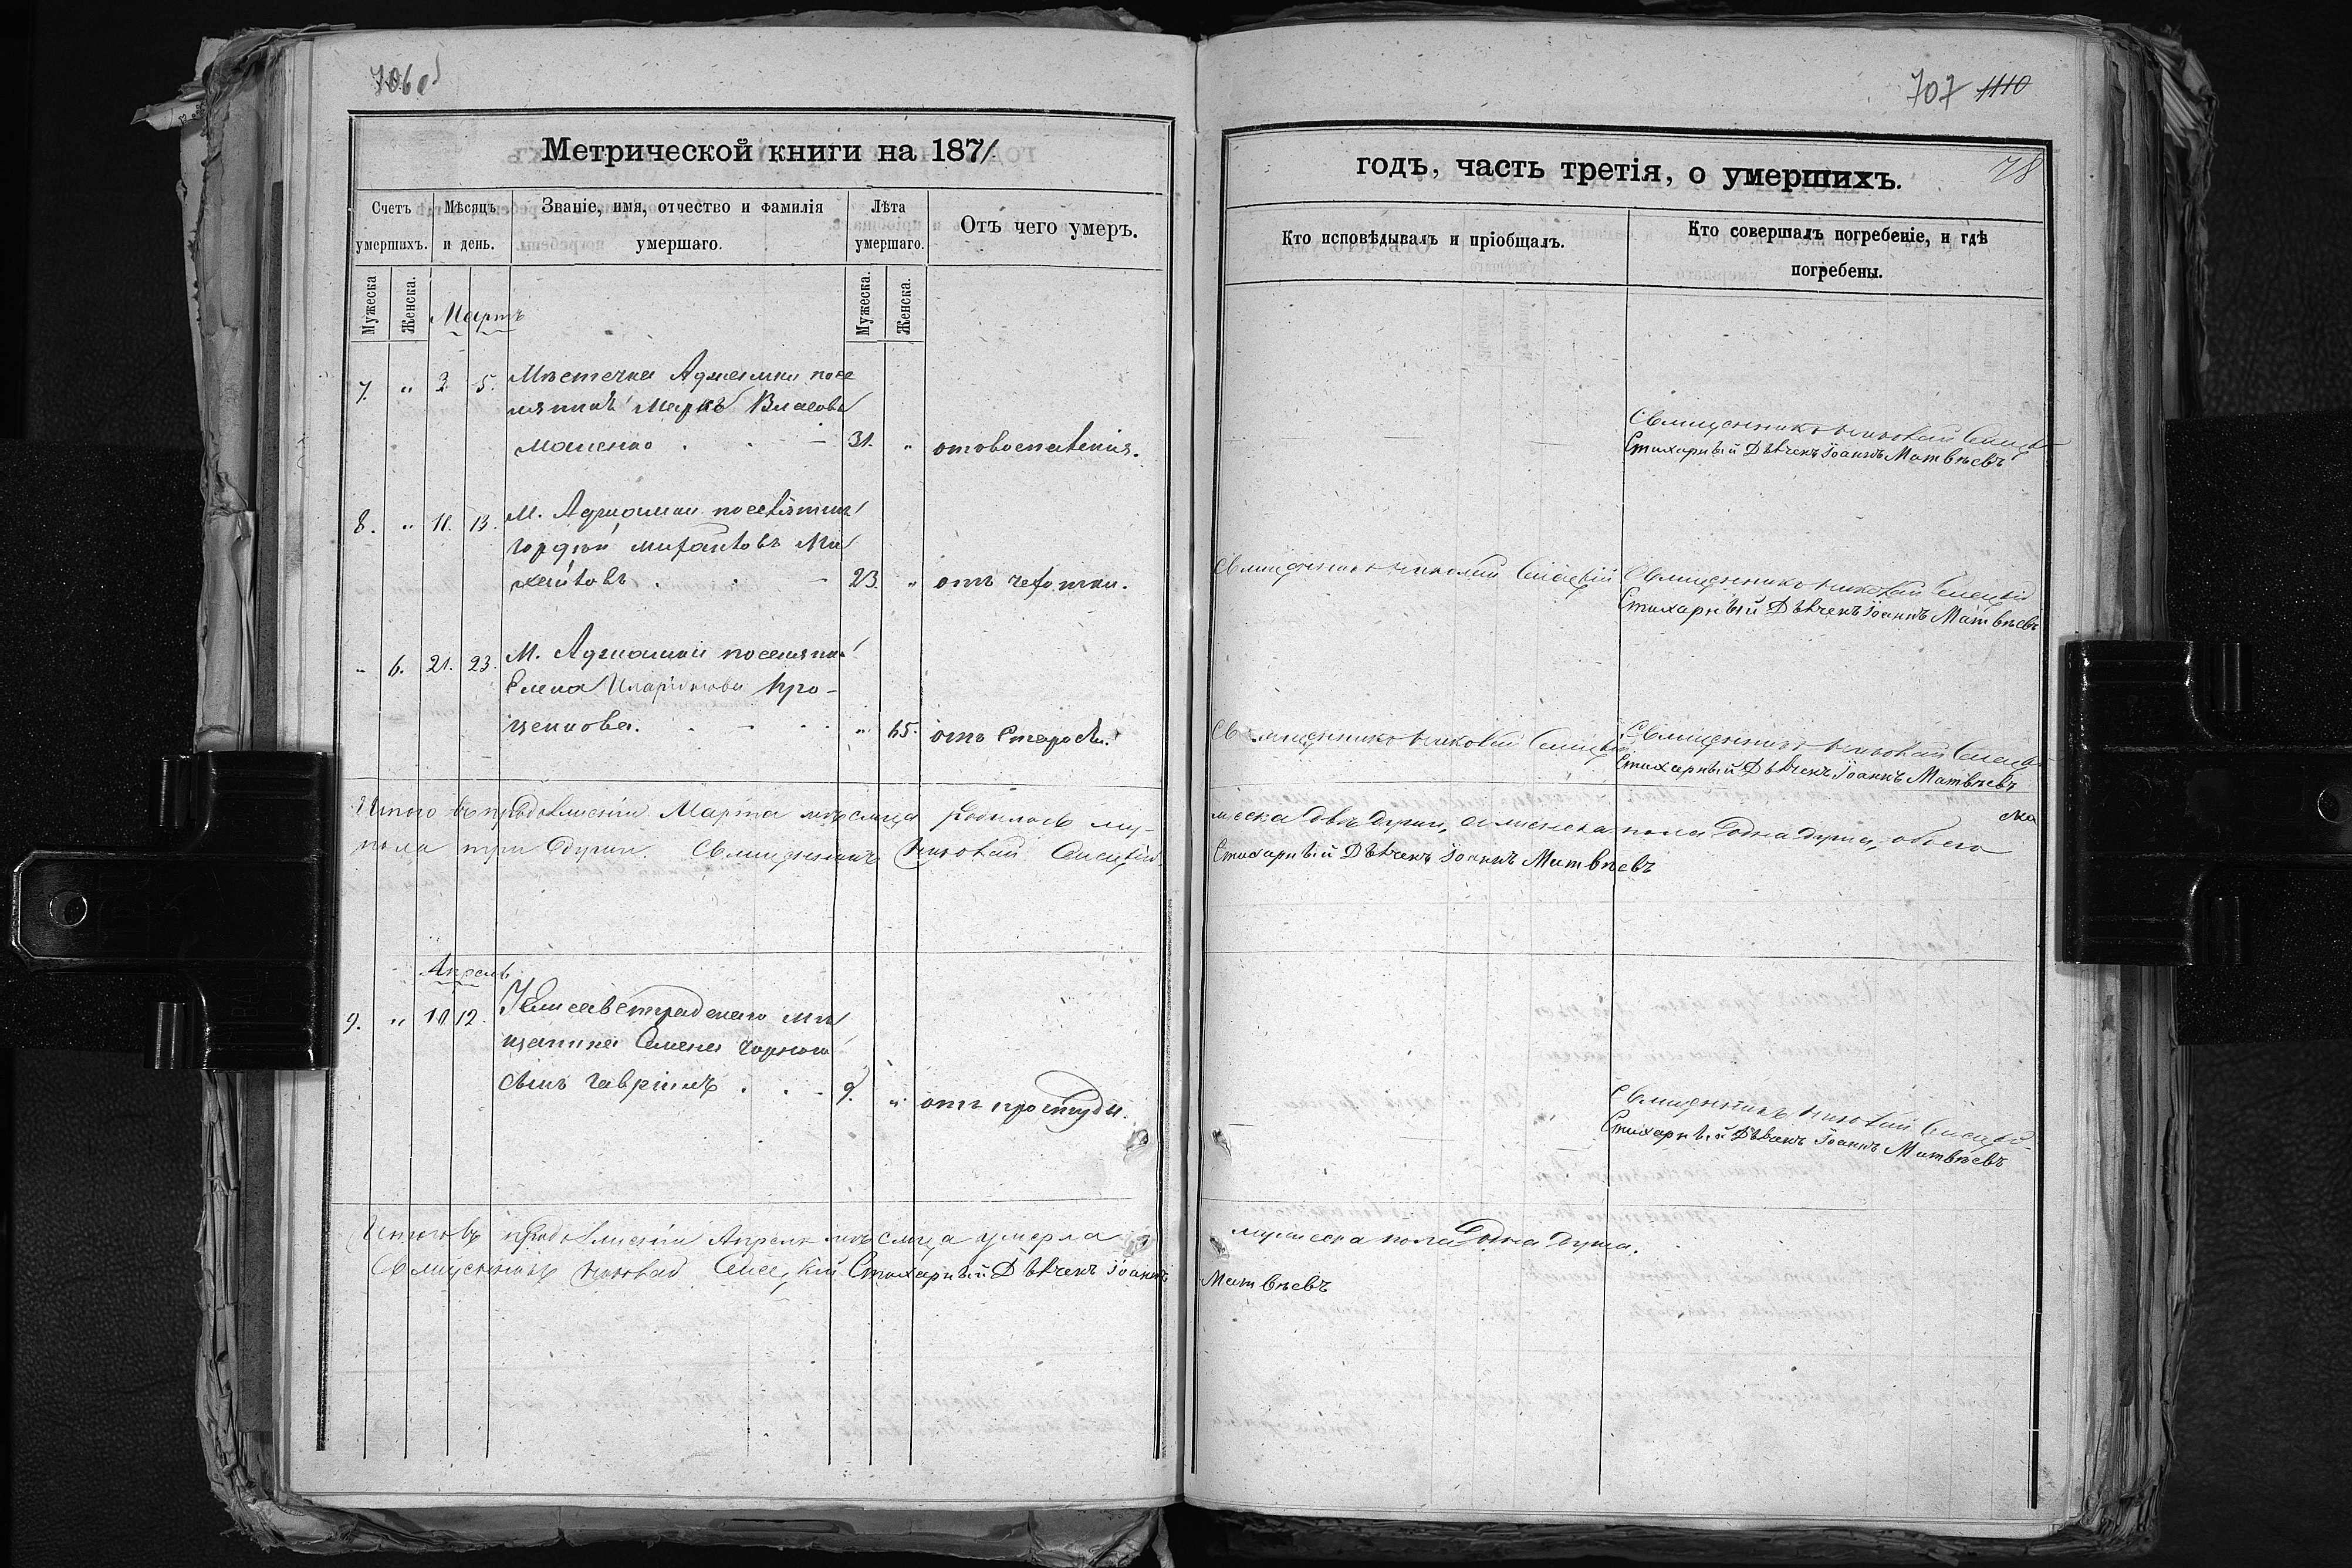 706 об
Метрической книги на 1871
Счетъ умершихъ.
Мѣсяцъ и день.
Званіе, имя, отчество и фамилія умершаго.
Лѣта умершаго.
Отъ чего умеръ.
Мужеска
Женска.
Мартъ
Мужеска.
Женска.
7. " 3. 5. Мѣстечка Аджамки посе
лянинъ Маркъ Власовъ
31. " отъ воспаленія.
8. " 11. 13. М. Аджамки поселянинъ
Гордѣй Михайловъ Ми
хайловъ . . - 23. " отъ чехотки.
- 6. 21. 23. М. Аджамки поселянка
Елена Иларіонова Кро-
" 65. отъ Старости.
Итого въ продолженіи Марта мѣсяца родилось му-
пола три души. Священникъ Николай
Апрель
9. " 10 12. Елисаветградскаго мѣ
щанина Семена Чорнаго
сынъ Гавріилъ . . - 9. " отъ простуды.
Итого въ продолженіи Апреля мѣсяца умерла
Священникъ Николай Стихарный Дьячекъ Іоаннъ
707 1110
годъ, часть третія, о умершихъ.
78
Кто исповѣдывалъ и пріобщалъ.
Кто совершалъ погребеніе, и гдѣ погребены.
Священникъ Николай
Стихарный Дьячекъ Іоаннъ Матвѣевъ
Священникъ Николай
Священникъ Николай
Стихарный Дьячекъ Іоаннъ Матвѣевъ
Священникъ Николай
Священникъ Николай
Стихарный Дьячекъ Іоаннъ Матвѣевъ
жеска двѣ души, а женска пола одна душа, обоего
Стихарный Дьячекъ Іоаннъ Матвѣевъ
Священникъ Николай
Стихарный Дьячекъ Іоаннъ Матвѣевъ
мужеска пола одна душа.
Матвѣевъ